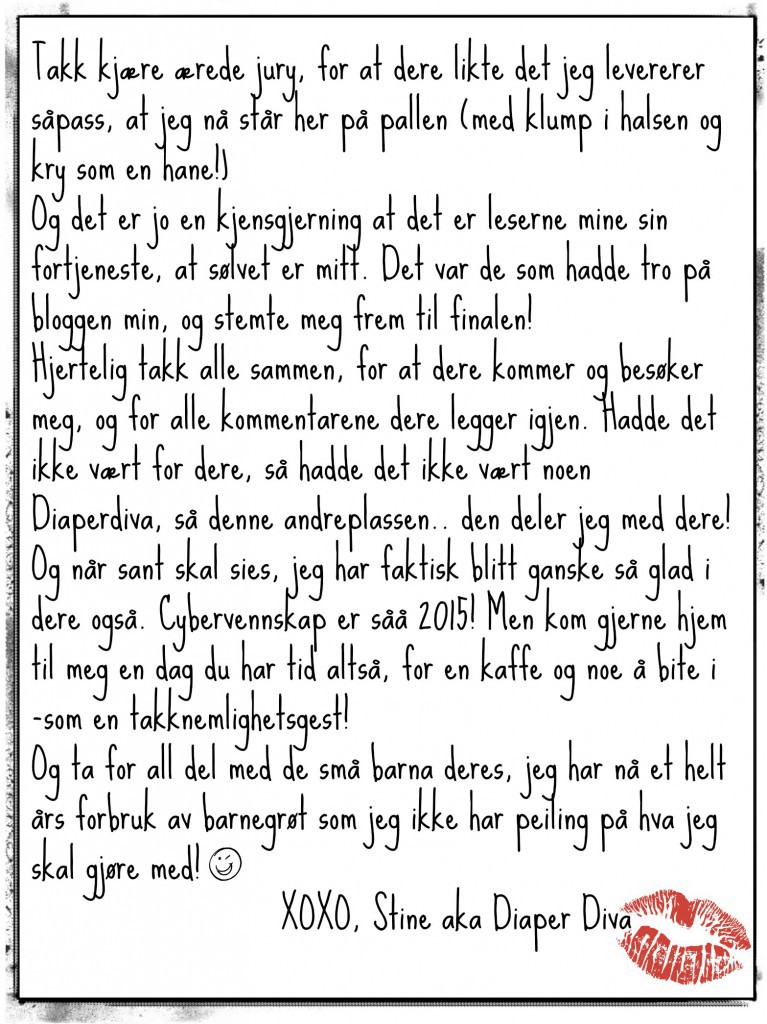 Takk kjære ærede jury, for at dere likte det jeg levererer
såpass, at jeg nå står her på pallen (med klump i halsen og
kry som en hane!)
Og det er jo en kjensgjerning at det er leserne mine sin
fortjeneste, at sølvet er mitt. Det var de som hadde tro på
bloggen min, og stemte meg frem til finalen!
Hjertelig takk alle sammen, for at dere kommer og besøker
meg, og for alle kommentarene dere legger igjen. Hadde det
ikke vært for dere, så hadde det ikke vært noen
Diaperdiva, så denne andreplassen.. den deler jeg med dere!
Og når sant skal sies, jeg har faktisk blitt ganske så glad i
dere også. Cybervennskap er såå 2015! Men kom gjerne hjem
til meg en dag du har tid altså, for en kaffe og noe å bite i
-som en takknemlighetsgest!
Og ta for all del med de små barna deres, jeg har nå et helt
års forbruk av barnegrøt som jeg ikke har peiling på hva jeg
skal gjøre med!
XOXO, Stine aka Diaper Diva